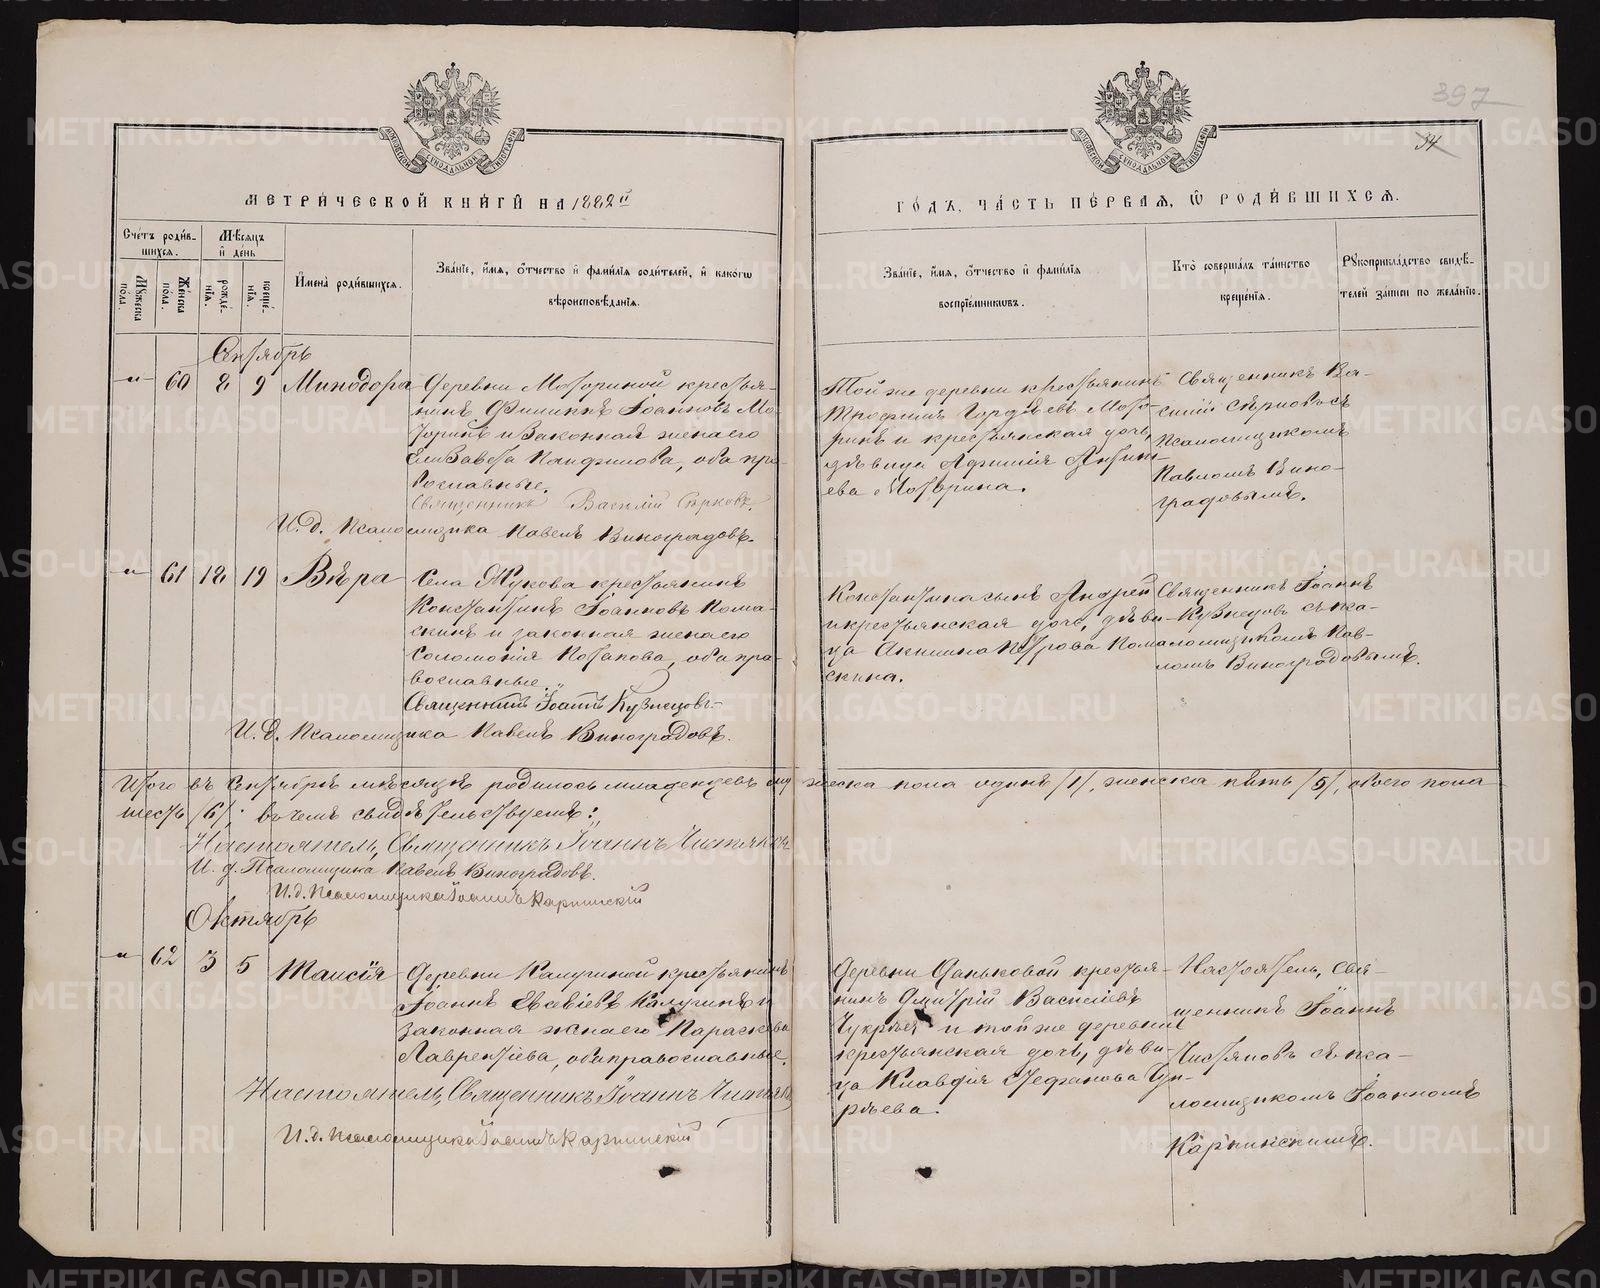 397
34
МОСКОВСКОЙ СѴНОДАЛЬНОЙ ТИПОГРАФІИ
МОСКОВСКОЙ СѴНОДАЛЬНОЙ ТИПОГРАФІИ
МЕТРИ́ЧЕСКОЙ КНИ́ГИ НА 1882й
ГО́ДЪ, ЧА́СТЬ ПЕ́РВАЯ, Ѡ РОДИ́ВШИХСЯ.
Сче́тъ роди́в-
шихся.
Мѣ́сяцъ
и де́нь
Му́жеска
по́ла.
Же́нска
по́ла.
рожде́-
нїя.
креще́-
нїя.
Имена̀ роди́вшихся.
Зва́нїе, и́мя, о́тчество и фами́лїя роди́телей, и како́гѡ
вѣроисповѣ́данїя.
Зва́нїе, и́мя, о́тчество и фами́лїя
воспрїе́мникѡвъ.
Кто̀ соверша́лъ та́инство
креще́нїя.
Рукоприкла́дство свидѣ́-
телей за́писи по жела́нїю.
Сентябрь
-„- 60 8 9 Минодора
Деревни Моториной крестья-
нинъ Филиппъ Іоанновъ Мо-
торинъ и законная жена его
Елизавета Панфилова, оба пра-
вославные.
Священникъ Василій Сѣрковъ.
И. д. Псаломщика Павелъ Виноградовъ.
Той же деревни крестьянинъ
Трофимъ Гордѣевъ Мото-
ринъ и крестьянская дочь,
дѣвица Афимія
ева Моторина.
Священникъ Ва-
силій Сѣрковъ съ
псаломщикомъ
Павломъ Вино-
градовымъ.
-„- 61 18 19 Вѣра
Села Жукова крестьянинъ
Константинъ Іоанновъ Пома-
скинъ и законная жена его
Соломонія Потапова, оба пра-
вославные.
Священникъ Іоаннъ Кузнецовъ
И. д. Псаломщика Павелъ Виноградовъ.
Константина сынъ Андрей
и крестьянская дочь, дѣви-
ца Акилина Петрова Пома-
скина.
Священникъ Іоаннъ
Кузнецовъ съ пса-
ломщикомъ Пав-
ломъ Виноградовымъ.
Итого въ Сентябрѣ мѣсяцѣ родилось младенцевъ мужеска пола одинъ /1/, женска пять /5/, обоего пола
шесть /6/; въ чемъ свидѣтельствуемъ:
Настоятель, Священникъ Іоаннъ Чистяковъ
И. д. Псаломщика Павелъ Виноградовъ.
И. д. Псаломщика Іоаннъ Карпинскій
Октябрь
-„- 62 3 5 Таисія
Деревни Калугиной крестьянинъ
Іоаннъ Савіевъ Калугинъ и
законная жена его Параскева
Лаврентіева, оба православные.
Настоятель, Священникъ Іоаннъ Чистяковъ
И. д. Псаломщика Іоаннъ Карпинскій
Деревни Даньковой крестья-
нинъ Дмитрій Василіевъ
и той же деревни
крестьянская дочь, дѣви-
ца Клавдія Стефанова
Настоятель, Свя-
щенникъ Іоаннъ
Чистяковъ съ пса-
ломщикомъ Іоанномъ
Карпинскимъ.
METRIKI.GASO-URAL.RU